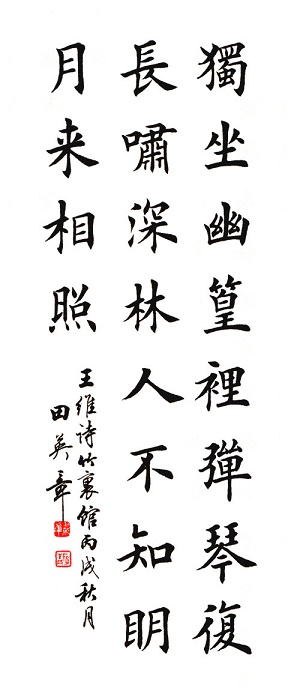 獨坐幽篁裡彈琴復
長嘯深林人不知眀
月来相照
王维诗竹裏馆丙戌秋月
田英章